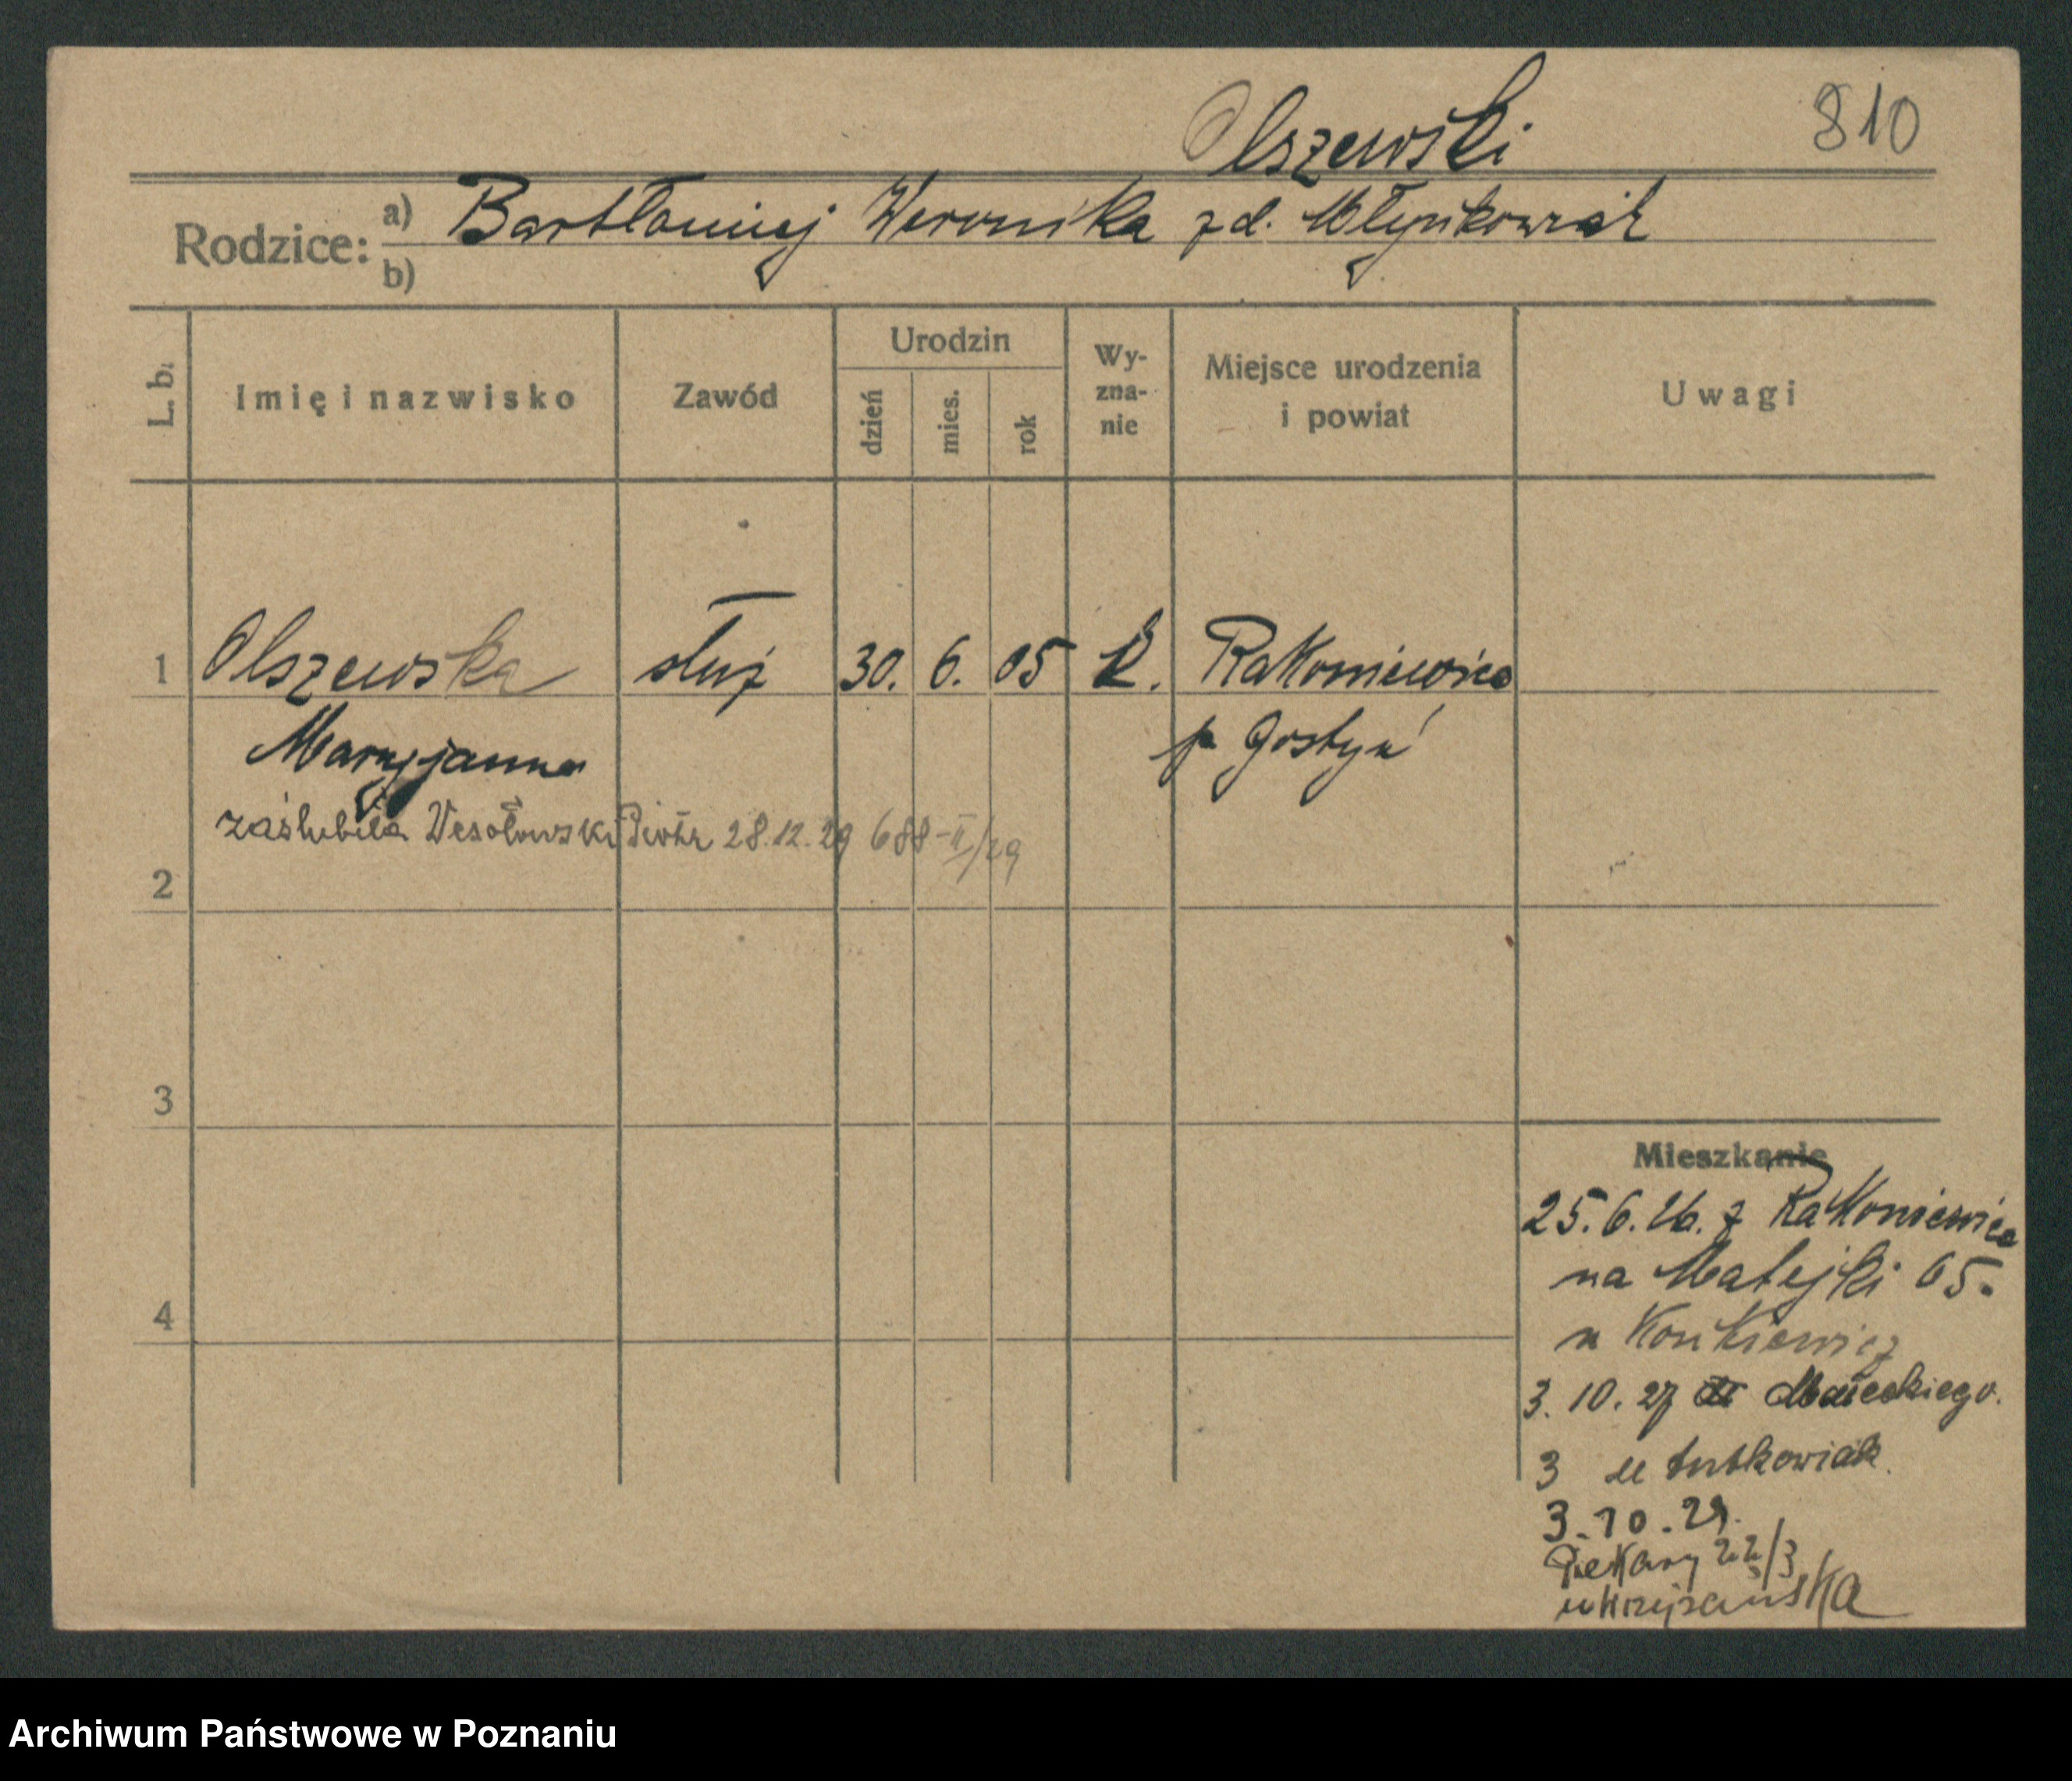 Olszewski
810
Rodzice: a) Bartłomiej Weronika zd. Młynkowiak
b)
L. b. Imię i nazwisko Zawód Urodzin dzień mies. rok Wy-zna-nie Miejsce urodzenia i powiat Uwagi
1 Olszewska służ 30. 6. 05 k. Rakoniewice
Maryjanna p Gostyń
zaślubiła Wesołowski Piotr 28.12.29 688-II/29
2
3
Mieszkanie
4
25.6.26. z Rakoniewice
na Matejki 65.
u Konkiewicz
3. 10. 27 Małeckiego.
3 u
3.10.29.
Piekary 22/3
u Krzyżańska
Archiwum Państwowe w Poznaniu